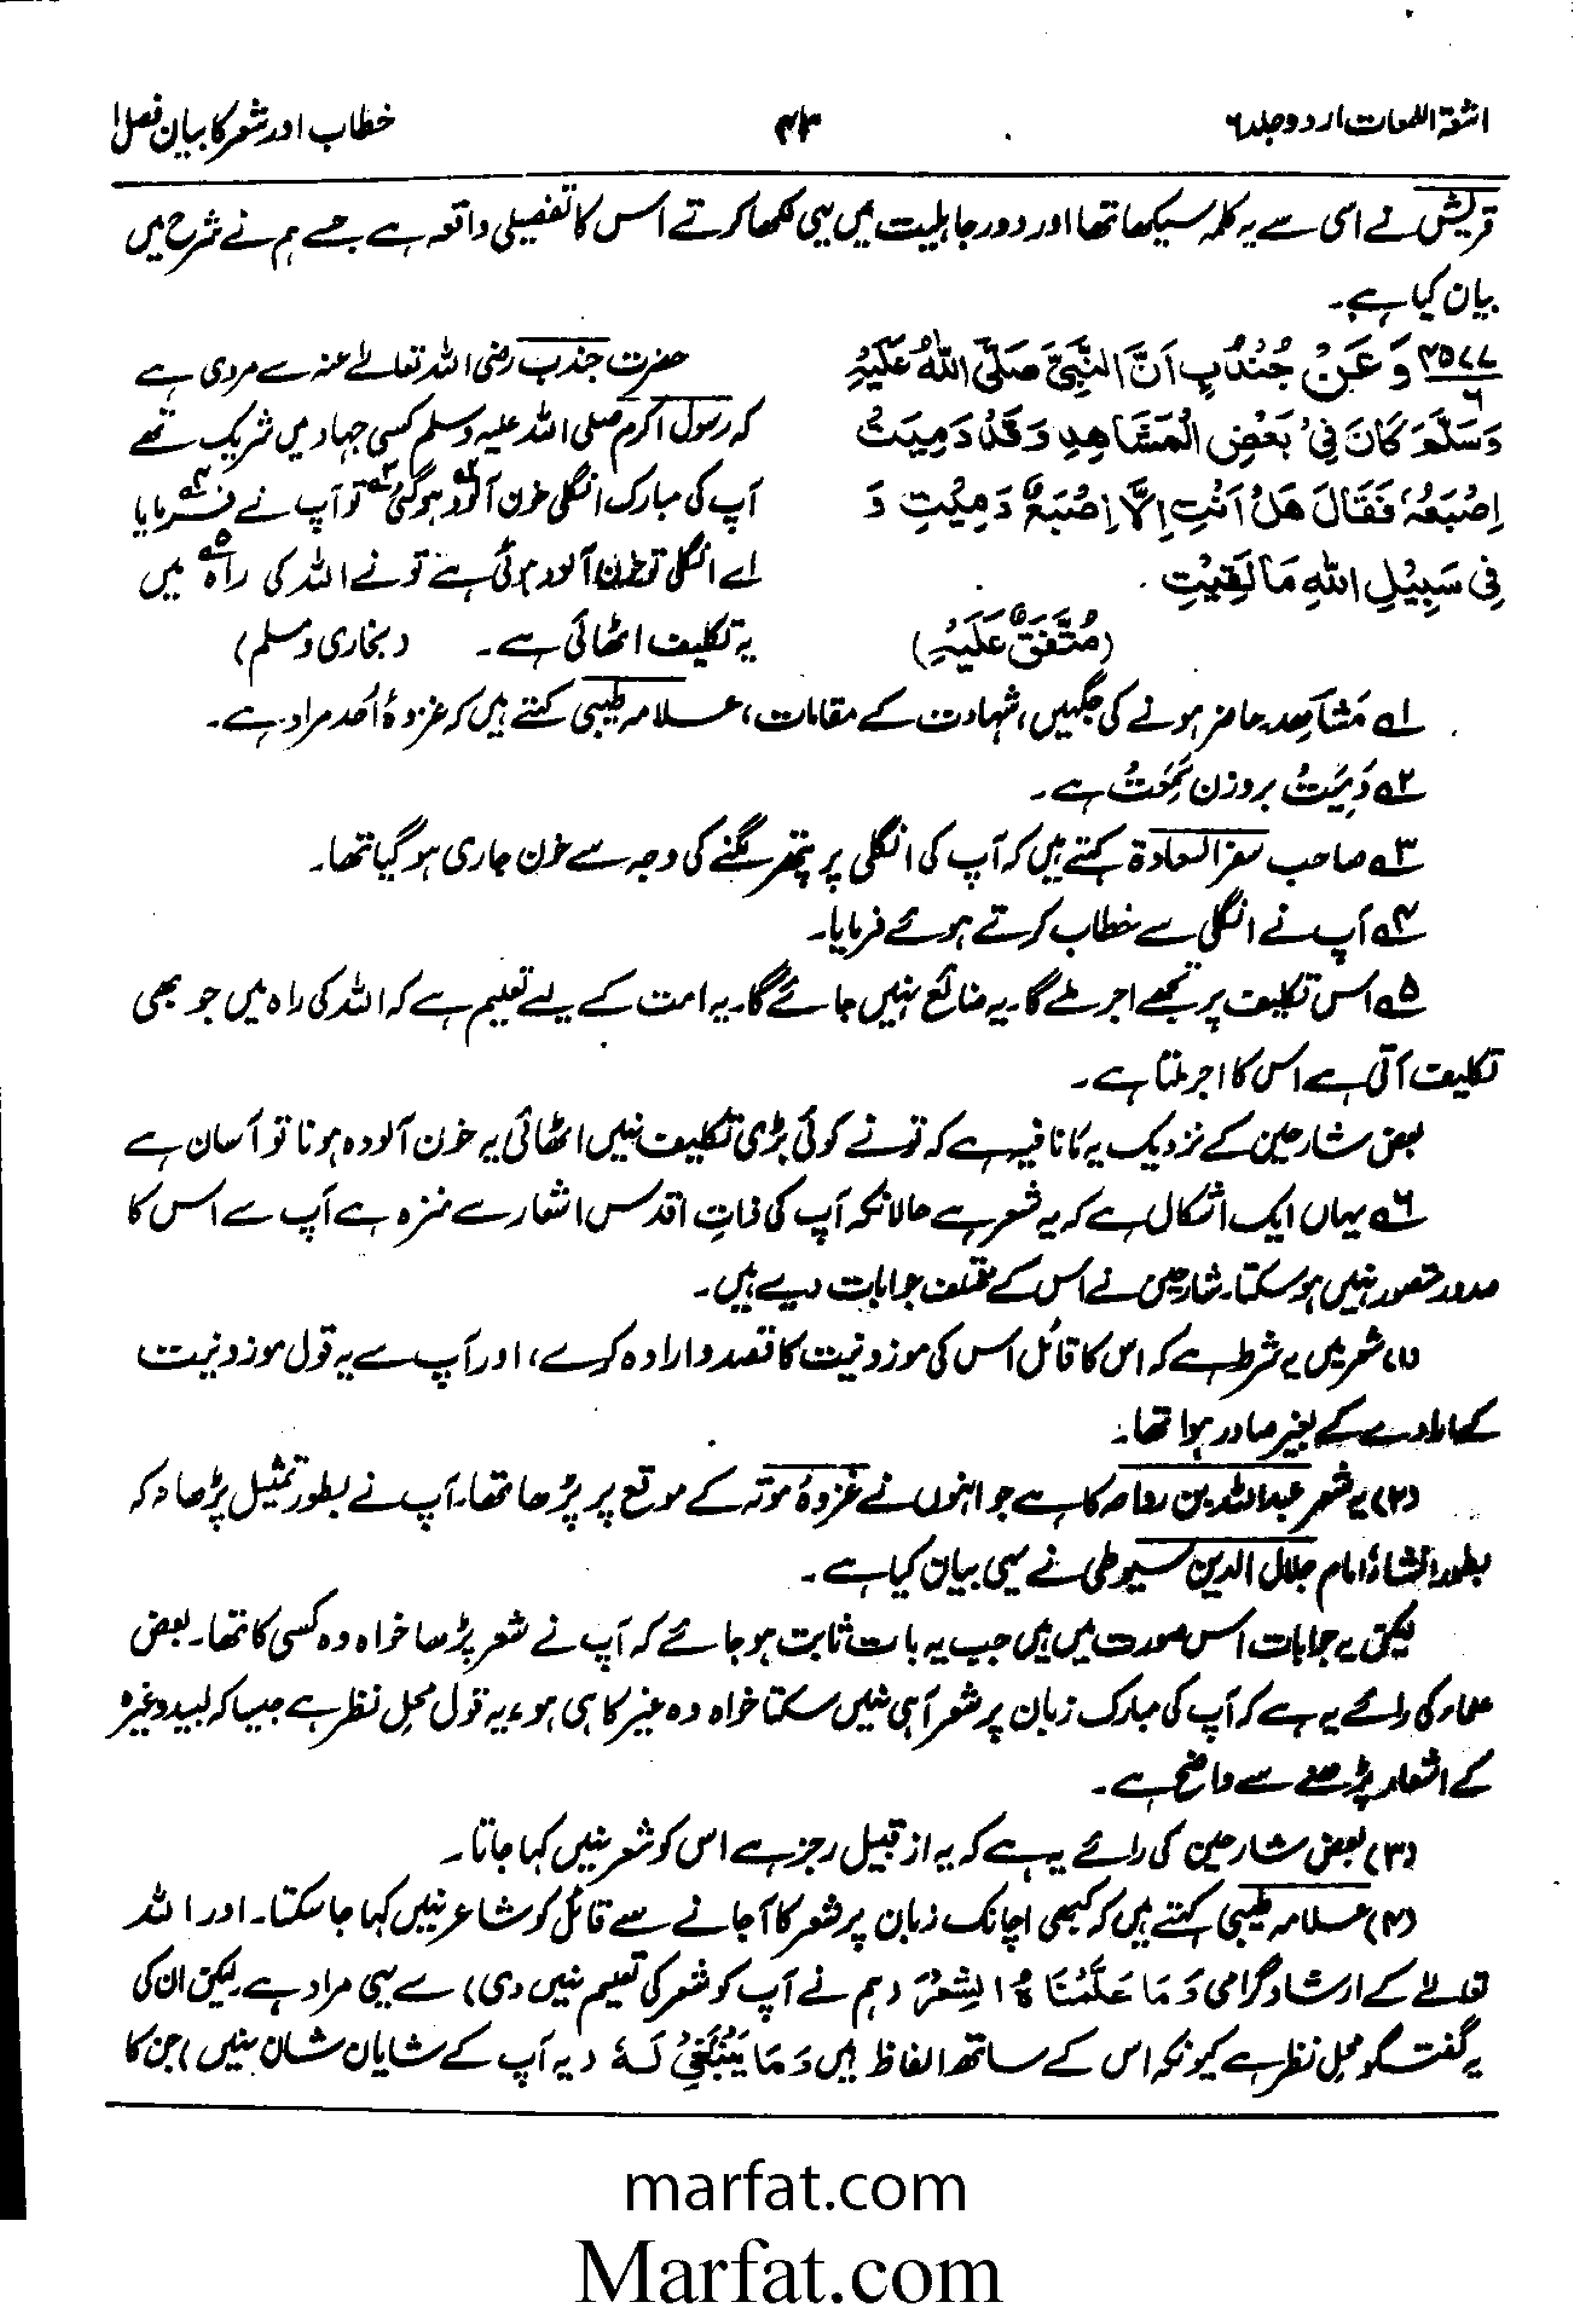 اشعۃ اللمعات اردو جلد ۶
۴۳
خطاب اور شعر کا بیان فصل ۱
قریش نے اسی سے یہ کلمہ سیکھا تھا اور دور جاہلیت میں یہی لکھا کرتے اس کا تفصیلی واقعہ ہے جسے ہم نے شرح میں
بیان کیا ہے۔
۴۵۷۷/۶ وَعَنْ جُنْدُبٍ اَنَّ النَّبِیَّ صَلَّی اللّٰهُ عَلَیْهِ
وَسَلَّمَ كَانَ فِیْ بَعْضِ الْمَشَاهِدِ وَقَدْ دَمِیَتْ
اِصْبَعُهٗ فَقَالَ هَلْ اَنْتِ اِلَّا اِصْبَعٌ دَمِیْتِ وَ
فِیْ سَبِیْلِ اللّٰهِ مَا لَقِیْتِ
(مُتَّفَقٌ عَلَیْهِ)
حضرت جندب رضی اللہ تعالےٰ عنہ سے مروی ہے
کہ رسول اکرم صلی اللہ علیہ وسلم کسی جہاد میں شریک تھے
آپ کی مبارک انگلی خون آلود ہوگئی تو آپ نے فرمایا
اے انگلی تو خون آلود ہوئی ہے تو نے اللہ کی راہ میں
یہ تکلیف اٹھائی ہے۔ (بخاری و مسلم)
۱؎ مَشَاهِد۔ حاضر ہونے کی جگہیں، شہادت کے مقامات، علامہ طیبی کہتے ہیں کہ غزوۂ اُحد مراد ہے۔
۲؎ دَمِیَتْ بروزن ہے۔
۳؎ صاحب سفر السعادۃ کہتے ہیں کہ آپ کی انگلی پر پتھر لگنے کی وجہ سے خون جاری ہوگیا تھا۔
۴؎ آپ نے انگلی سے خطاب کرتے ہوئے فرمایا۔
۵؎ اس تکلیف پر تجھے اجر ملے گا۔ یہ ضائع نہیں جائے گا۔ یہ امت کے لیے تعلیم ہے کہ اللہ کی راہ میں جو بھی
تکلیف آتی ہے اس کا اجر ملتا ہے۔
بعض شارحین کے نزدیک یہ مَا نافیہ ہے کہ تو نے کوئی بڑی تکلیف نہیں اٹھائی یہ خون آلودہ ہونا تو آسان ہے
۶؎ یہاں ایک اشکال ہے کہ یہ شعر ہے حالانکہ آپ کی ذاتِ اقدس اشعار سے منزہ ہے آپ سے اس کا
صدور متصور نہیں ہو سکتا۔ شارحین نے اس کے مختلف جوابات دیے ہیں۔
(۱) شعر میں یہ شرط ہے کہ اس کا قائل اس کی موزونیت کا قصد و ارادہ کرے، اور آپ سے یہ قول موزونیت
کے ارادے کے بغیر صادر ہوا تھا۔
(۲) یہ شعر عبداللہ بن رواحہ کا ہے جو انہوں نے غزوۂ موتہ کے موقع پر پڑھا تھا۔ آپ نے بطور تمثیل پڑھا نہ کہ
بطور انشاء، امام جلال الدین سیوطی نے یہی بیان کیا ہے۔
لیکن یہ جوابات اس صورت میں ہیں جب یہ بات ثابت ہو جائے کہ آپ نے شعر پڑھا خواہ وہ کسی کا تھا۔ بعض
علماء کی رائے یہ ہے کہ آپ کی مبارک زبان پر شعر آ ہی نہیں سکتا خواہ وہ غیر کا ہی ہو، یہ قول محلِ نظر ہے جیسا کہ لبید وغیرہ
کے اشعار پڑھنے سے واضح ہے۔
(۳) بعض شارحین کی رائے یہ ہے کہ یہ از قبیل رجز ہے اس کو شعر نہیں کہا جاتا۔
(۴) علامہ طیبی کہتے ہیں کہ کبھی اچانک زبان پر شعر کا آجانے سے قائل کو شاعر نہیں کہا جا سکتا۔ اور اللہ
تعالےٰ کے ارشادِ گرامی وَمَا عَلَّمْنَاهُ الشِّعْرَ (ہم نے آپ کو شعر کی تعلیم نہیں دی) سے یہی مراد ہے۔ لیکن ان کی
یہ گفتگو محلِ نظر ہے کیونکہ اس کے ساتھ الفاظ ہیں وَمَا یَنْبَغِیْ لَهٗ (یہ آپ کے شایان شان نہیں) جن کا
marfat.com
Marfat.com